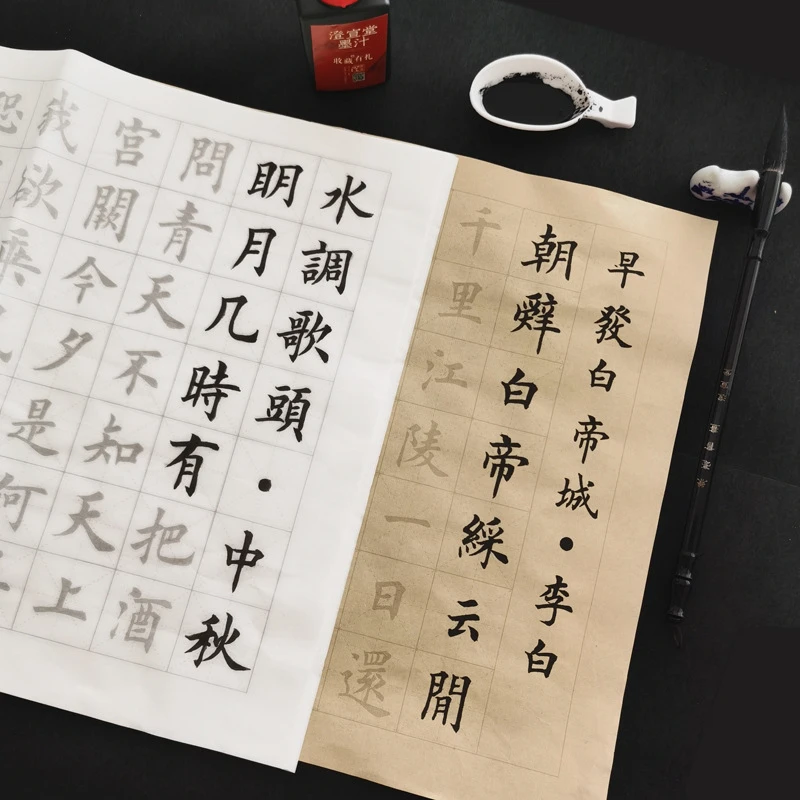 澄宣堂
墨汁
收藏有礼
早發白帝城·李白
朝辤白帝綵云閒
千里江陵一日還
水調歌頭·中秋
眀月几時有把酒
問青天不知天上
宮闕今夕是何
我欲乘
恐